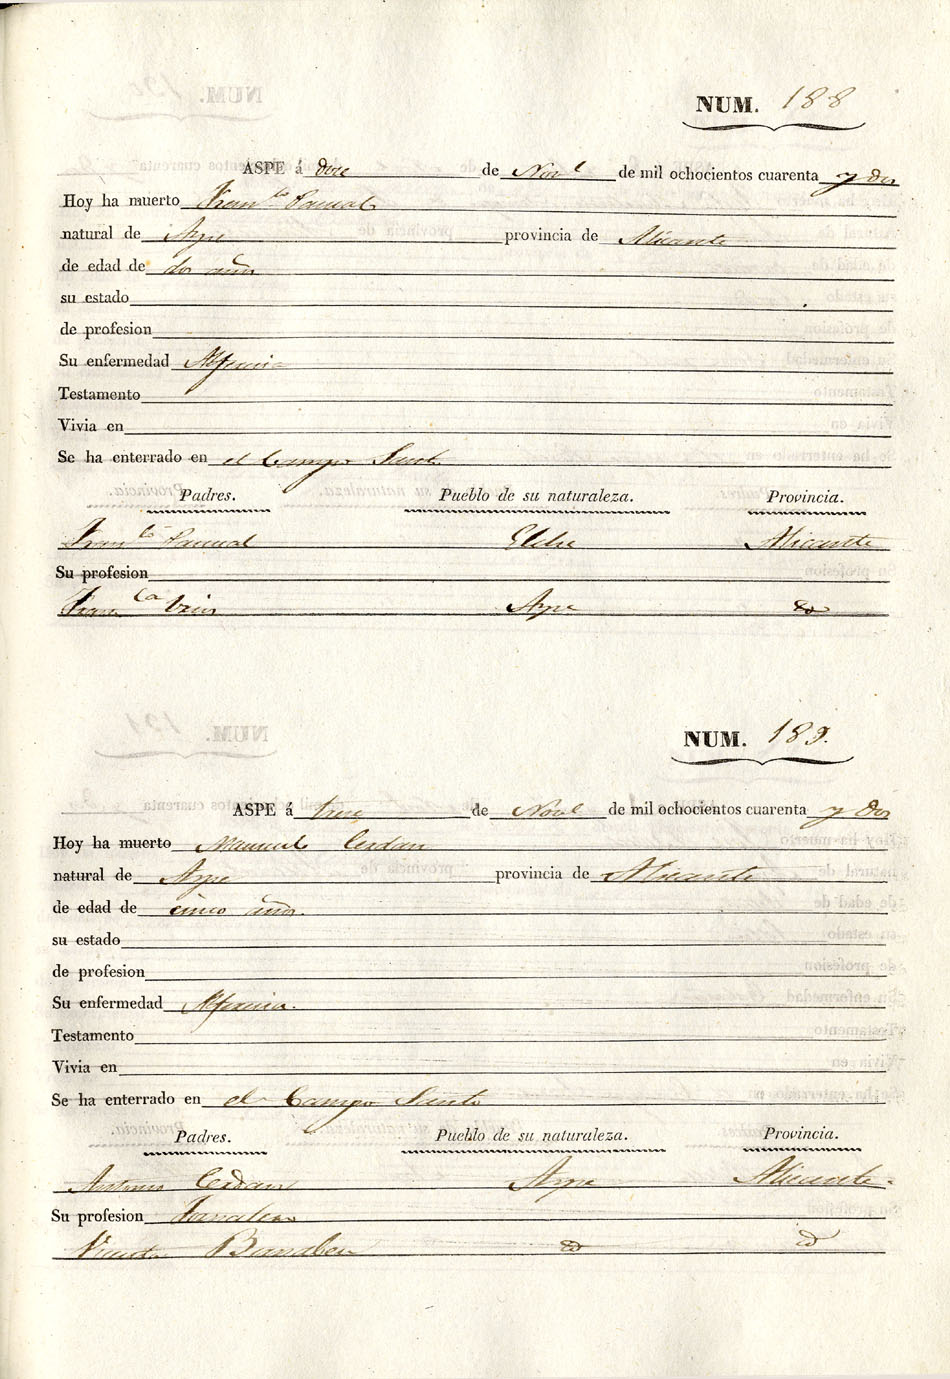 NUM. 188
ASPE á doce de Nov.e de mil ochocientos cuarenta y dos
Hoy ha muerto Fran.co Pascual
natural de Aspe provincia de Alicante
de edad de dos años
su estado
de profesion
Su enfermedad Alferecia
Testamento
Vivia en
Se ha enterrado en el Campo Santo
Padres. Pueblo de su naturaleza. Provincia.
Fran.co Pascual Elche Alicante
Su profesion
Fran.ca Aspe id
NUM. 189.
ASPE á trece de Nov.e de mil ochocientos cuarenta y dos
Hoy ha muerto Manuel Cerdan
natural de Aspe provincia de Alicante
de edad de cinco años.
su estado
de profesion
Su enfermedad Alferecia.
Testamento
Vivia en
Se ha enterrado en el Campo Santo
Padres. Pueblo de su naturaleza. Provincia.
Antonio Cerdan Aspe Alicante.
Su profesion Jornalero
Vicenta id id